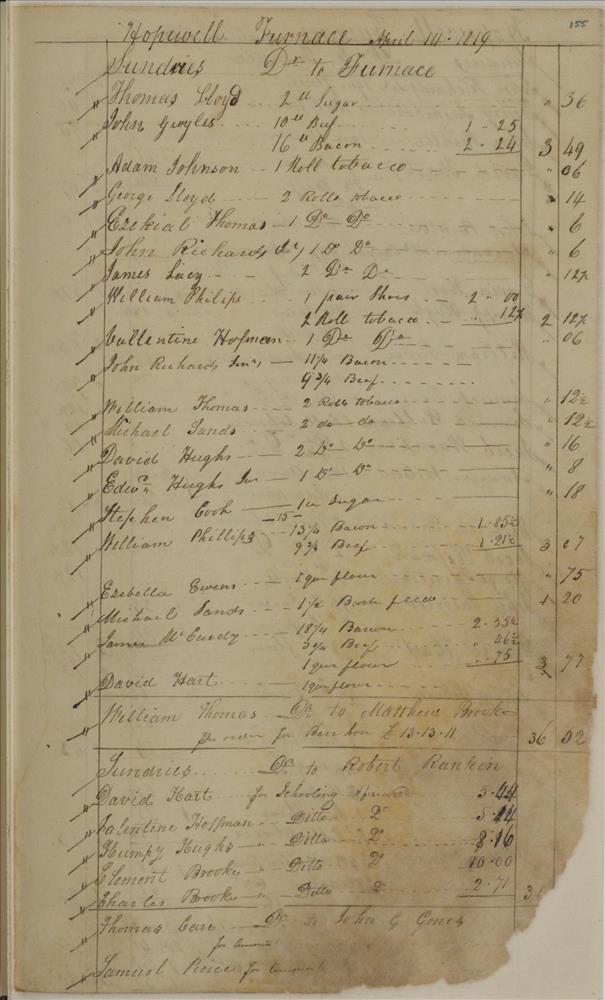 155
Hopewell Furnace April 14. 1819
Sundries Dr to Furnace
Thomas Lloyd 2 lb Sugar " 36
John Gwyles 10 lb Beef 1 . 25
16 lb Bacon 2 . 24 3 49
Adam Johnson 1 Roll tobacco " 06
George Lloyd 2 Rolls tobacco " 14
Ezekial Thomas 1 Do Do " 6
John Richards Jr 1 Do Do " 6
James Lacy 2 Do Do " 12½
William Philips 1 pair Shoes 2 " 00
2 Roll tobacco " 12½ 2 12½
Vallentine Hofman 1 Do Do " 06
John Richards Senr 11¼ Bacon
9¾ Beef
William Thomas 2 Rolls tobacco " 12½
Michael Sands 2 do do " 12½
David Hughs 2 Do Do " 16
Edwd Hughs 1 Do Do " 8
Stephen Cook 1 lb Sugar " 18
15
William Phillips 13¼ Bacon 1.85½
9¾ Beef 1.21½ 3 07
Ezebella Ewens 1 qr flour " 75
Michael Sands 1½ Bush 1 20
James McCurdy 18¼ Bacon 2.55½
3¾ Beef 46½
1 qr flour " 75 3 77
David Hart 1 qr flour
William Thomas Dr to Matthew Brooke
order for £ 13-13-11 36 52
Sundries Dr to Robert Rankin
David Hart for Schooling 5.44
Valentine Hoffman Ditto Do 5.44
Humpy Hughs " Ditto Do 8.16
Clement Brooke " Ditto Do 10.00
Charles Brooke " Ditto Do 2.71 3
Thomas Care Dr to John G Jones
for amount
Samuel Peirce for amount